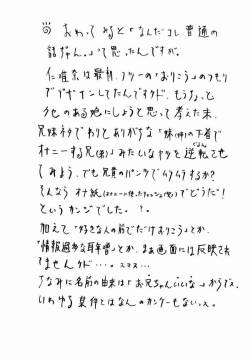 おわってみると「なんだコレ普通の
話じゃん。」って思ったんですが。
仁唯奈は最初、フツーの「おりこう」のつもり
デザインしてたんですケド、もうちょっと
クセのある娘にしようと思って考えた末、
兄妹ネタでわりとありがちな「妹(姉)の下着で
オナニーする兄(弟)」みたいなヤツを逆転させ
てみよう、でも兄貴のパンツでムラムラするか?
そんなら オナ紙
でどうだ!
というカンジでした。
加えて「好きな人の前でだけおりこう」とか、
「情報過多な耳年増」とか、まあ画面には反映でき
てませんケド…。スマヌ…
ちなみに名前の由来は「お兄ちゃんいいな」からでス。
いわゆる 実在とはなんのカンケーもないっス。